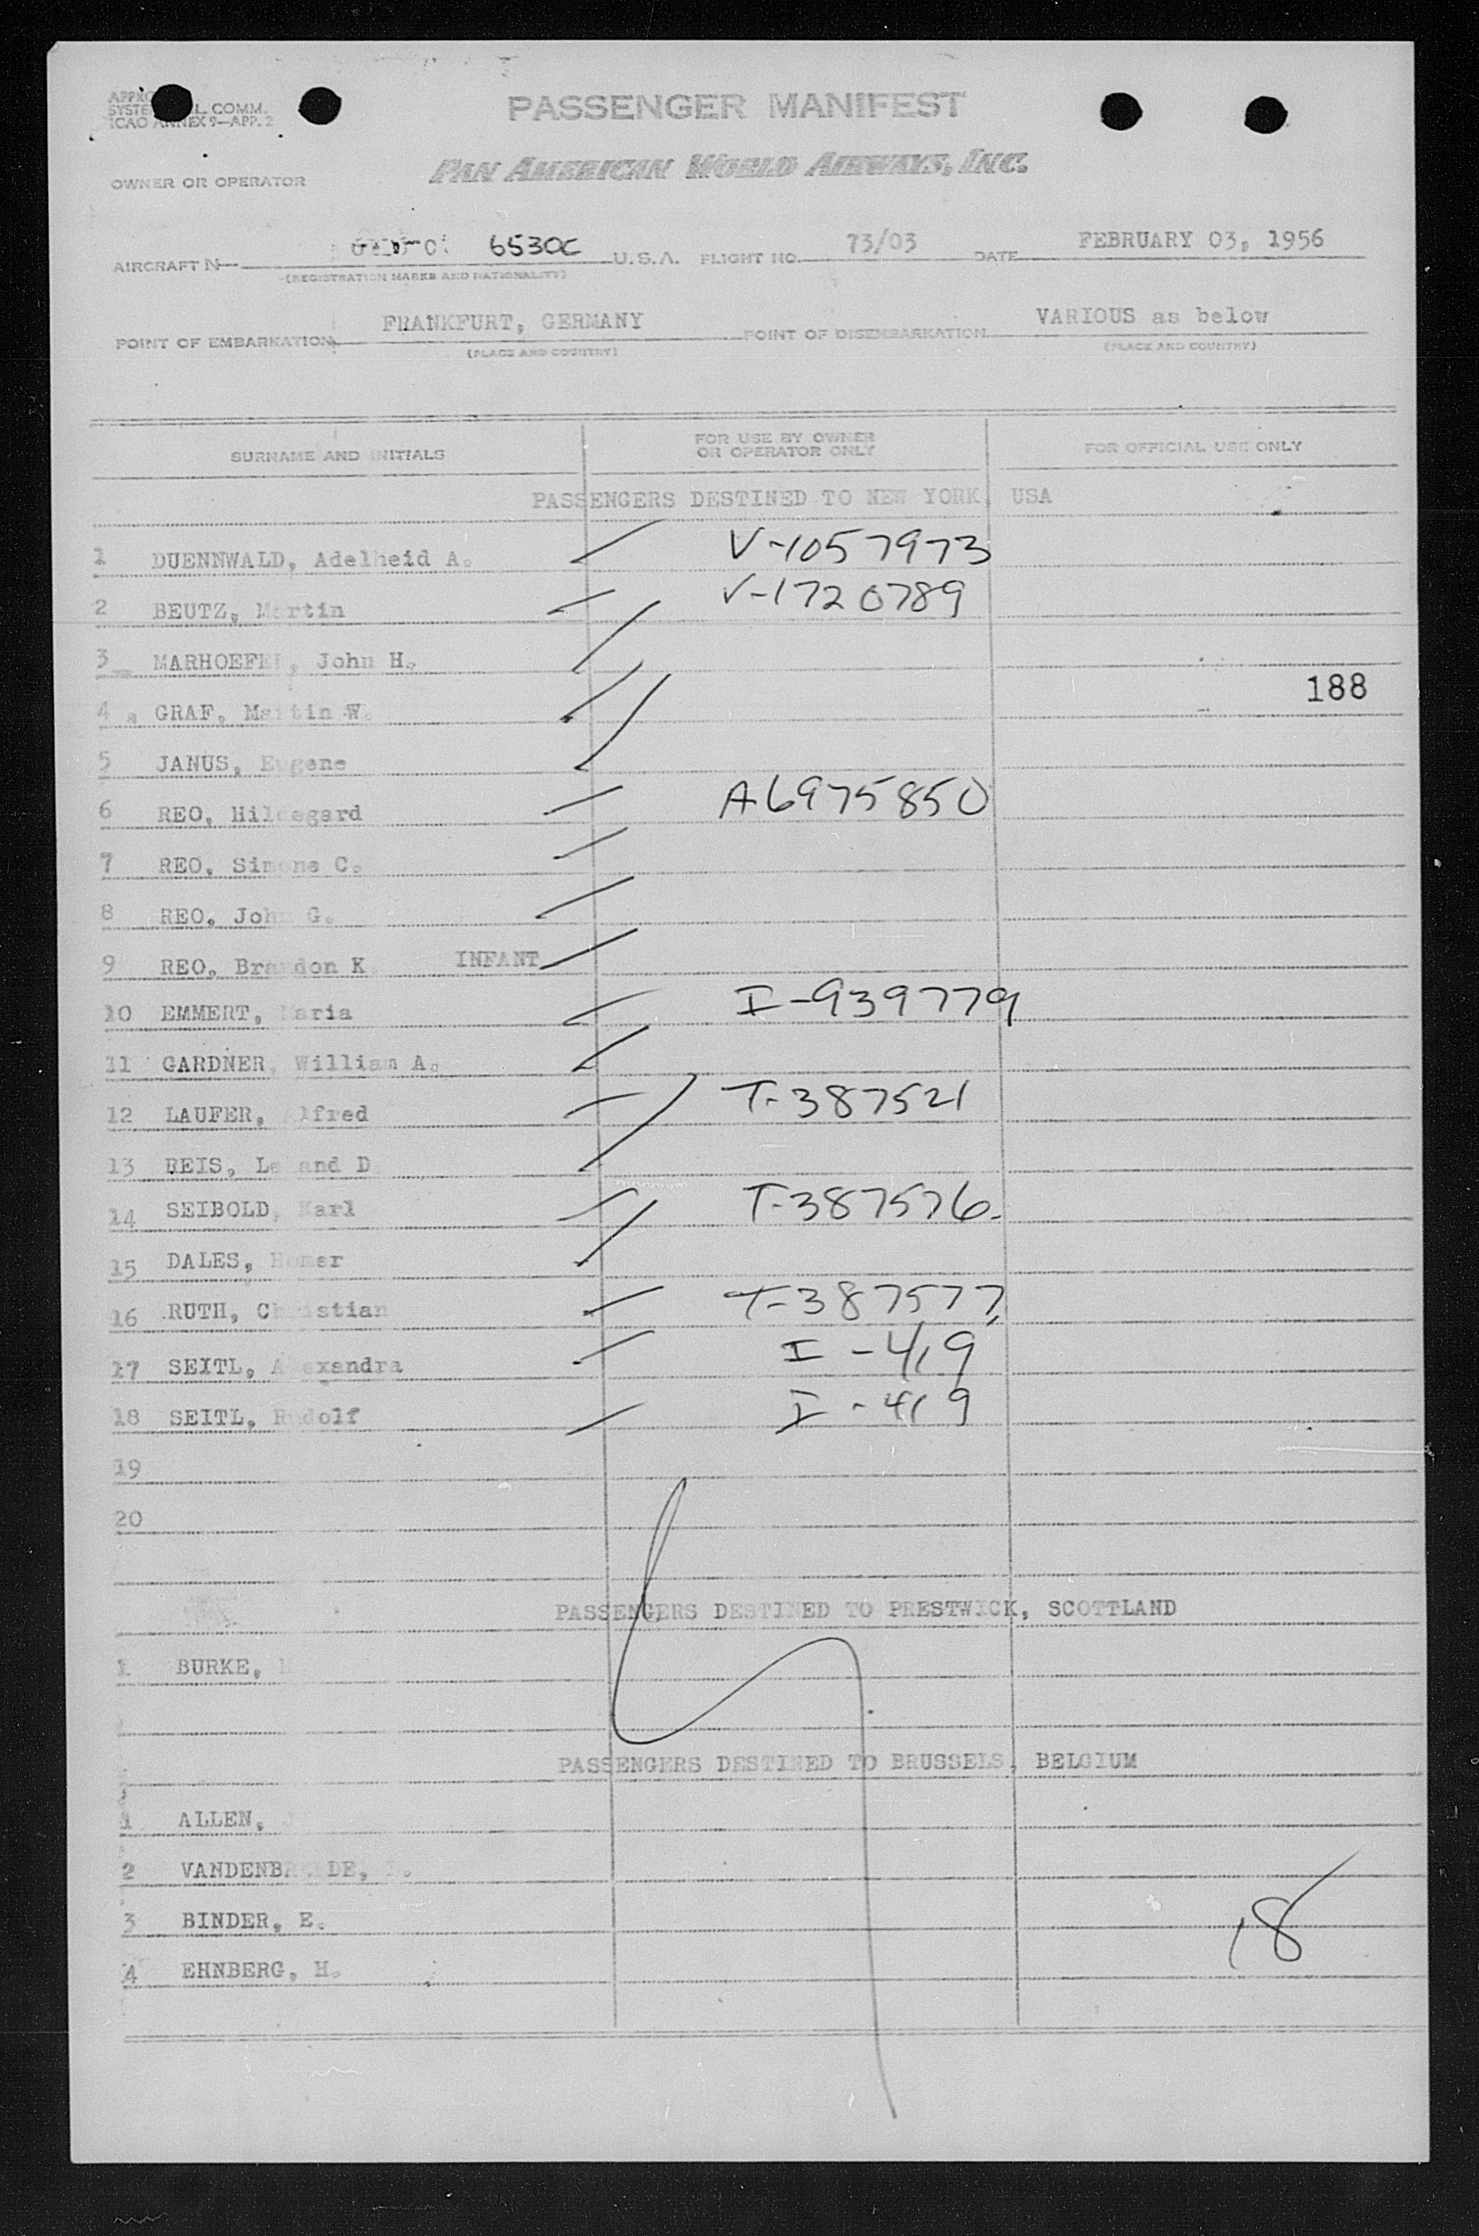 L. COMM.
ICAO ANNEX 9—APP. 2
PASSENGER MANIFEST
OWNER OR OPERATOR PAN AMERICAN WORLD AIRWAYS, INC.
AIRCRAFT N 6530C U.S.A. FLIGHT NO. 73/03 DATE FEBRUARY 03, 1956
(REGISTRATION MARKS AND NATIONALITY)
POINT OF EMBARKATION FRANKFURT, GERMANY POINT OF DISEMBARKATION VARIOUS as below
(PLACE AND COUNTRY) (PLACE AND COUNTRY)
SURNAME AND INITIALS FOR USE BY OWNER OR OPERATOR ONLY FOR OFFICIAL USE ONLY
PASSENGERS DESTINED TO NEW YORK, USA
1 DUENNWALD, Adelheid A. V-1057973
2 BEUTZ, Martin V-1720789
3 MARHOEFER, John H.
188
4 GRAF, Martin W.
5 JANUS, Eugene
6 REO, Hildegard A6975850
7 REO, Simone C.
8 REO, John G.
9 REO, Brandon K INFANT
10 EMMERT, Maria I-939779
11 GARDNER, William A.
12 LAUFER, Alfred T-387521
13 REIS, Leland D
14 SEIBOLD, Karl T-387576
15 DALES, Homer
16 RUTH, Christian T-387577
17 SEITL, Alexandra I-419
18 SEITL, Rudolf I-419
19
20
PASSENGERS DESTINED TO PRESTWICK, SCOTTLAND
1 BURKE,
PASSENGERS DESTINED TO BRUSSELS, BELGIUM
1 ALLEN,
2
3 BINDER, E.
4 EHNBERG, H.
18